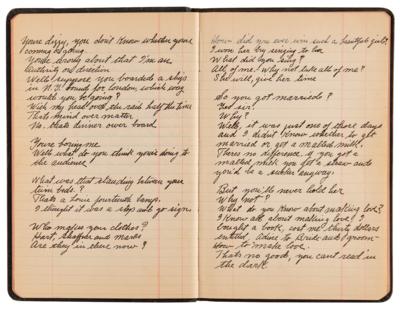 You're dizzy, you don't know whether you're
coming or going.
You're wrong about that I'm an
authority on direction
Well! Suppose you boarded a ship
in N.Y. bound for London which way
would you be going?
With my head over the rail half the time
That's mind over matter
No. that's dinner over board

You're boring me
Well what do you think you're doing to
the audience!

What was that standing between your
twin beds?
That's a Louis fourteenth lamp.
I thought it was a stop and go sign

Who makes your clothes?
Hart, Shaffner and Marx
Are they in there now?

How did you ever win such a beautiful girl?
I won her by singing to her
What did you sing?
All of me! Why not take all of me?
She will, give her time

So you got married?
Yes sir!
Why?
Well, it was just one of those days
and I didn't know whether to get
married or get a malted milk.
There's no difference if you got a
malted milk you got a straw and
you'd be a sucker anyway.

But you'll never hold her
Why not?
What do you know about making love?
I know all about making love! I
bought a book, cost me thirty dollars
entitled, advice to Bride and groom
How to make love.
That's no good, you can't read in
the dark